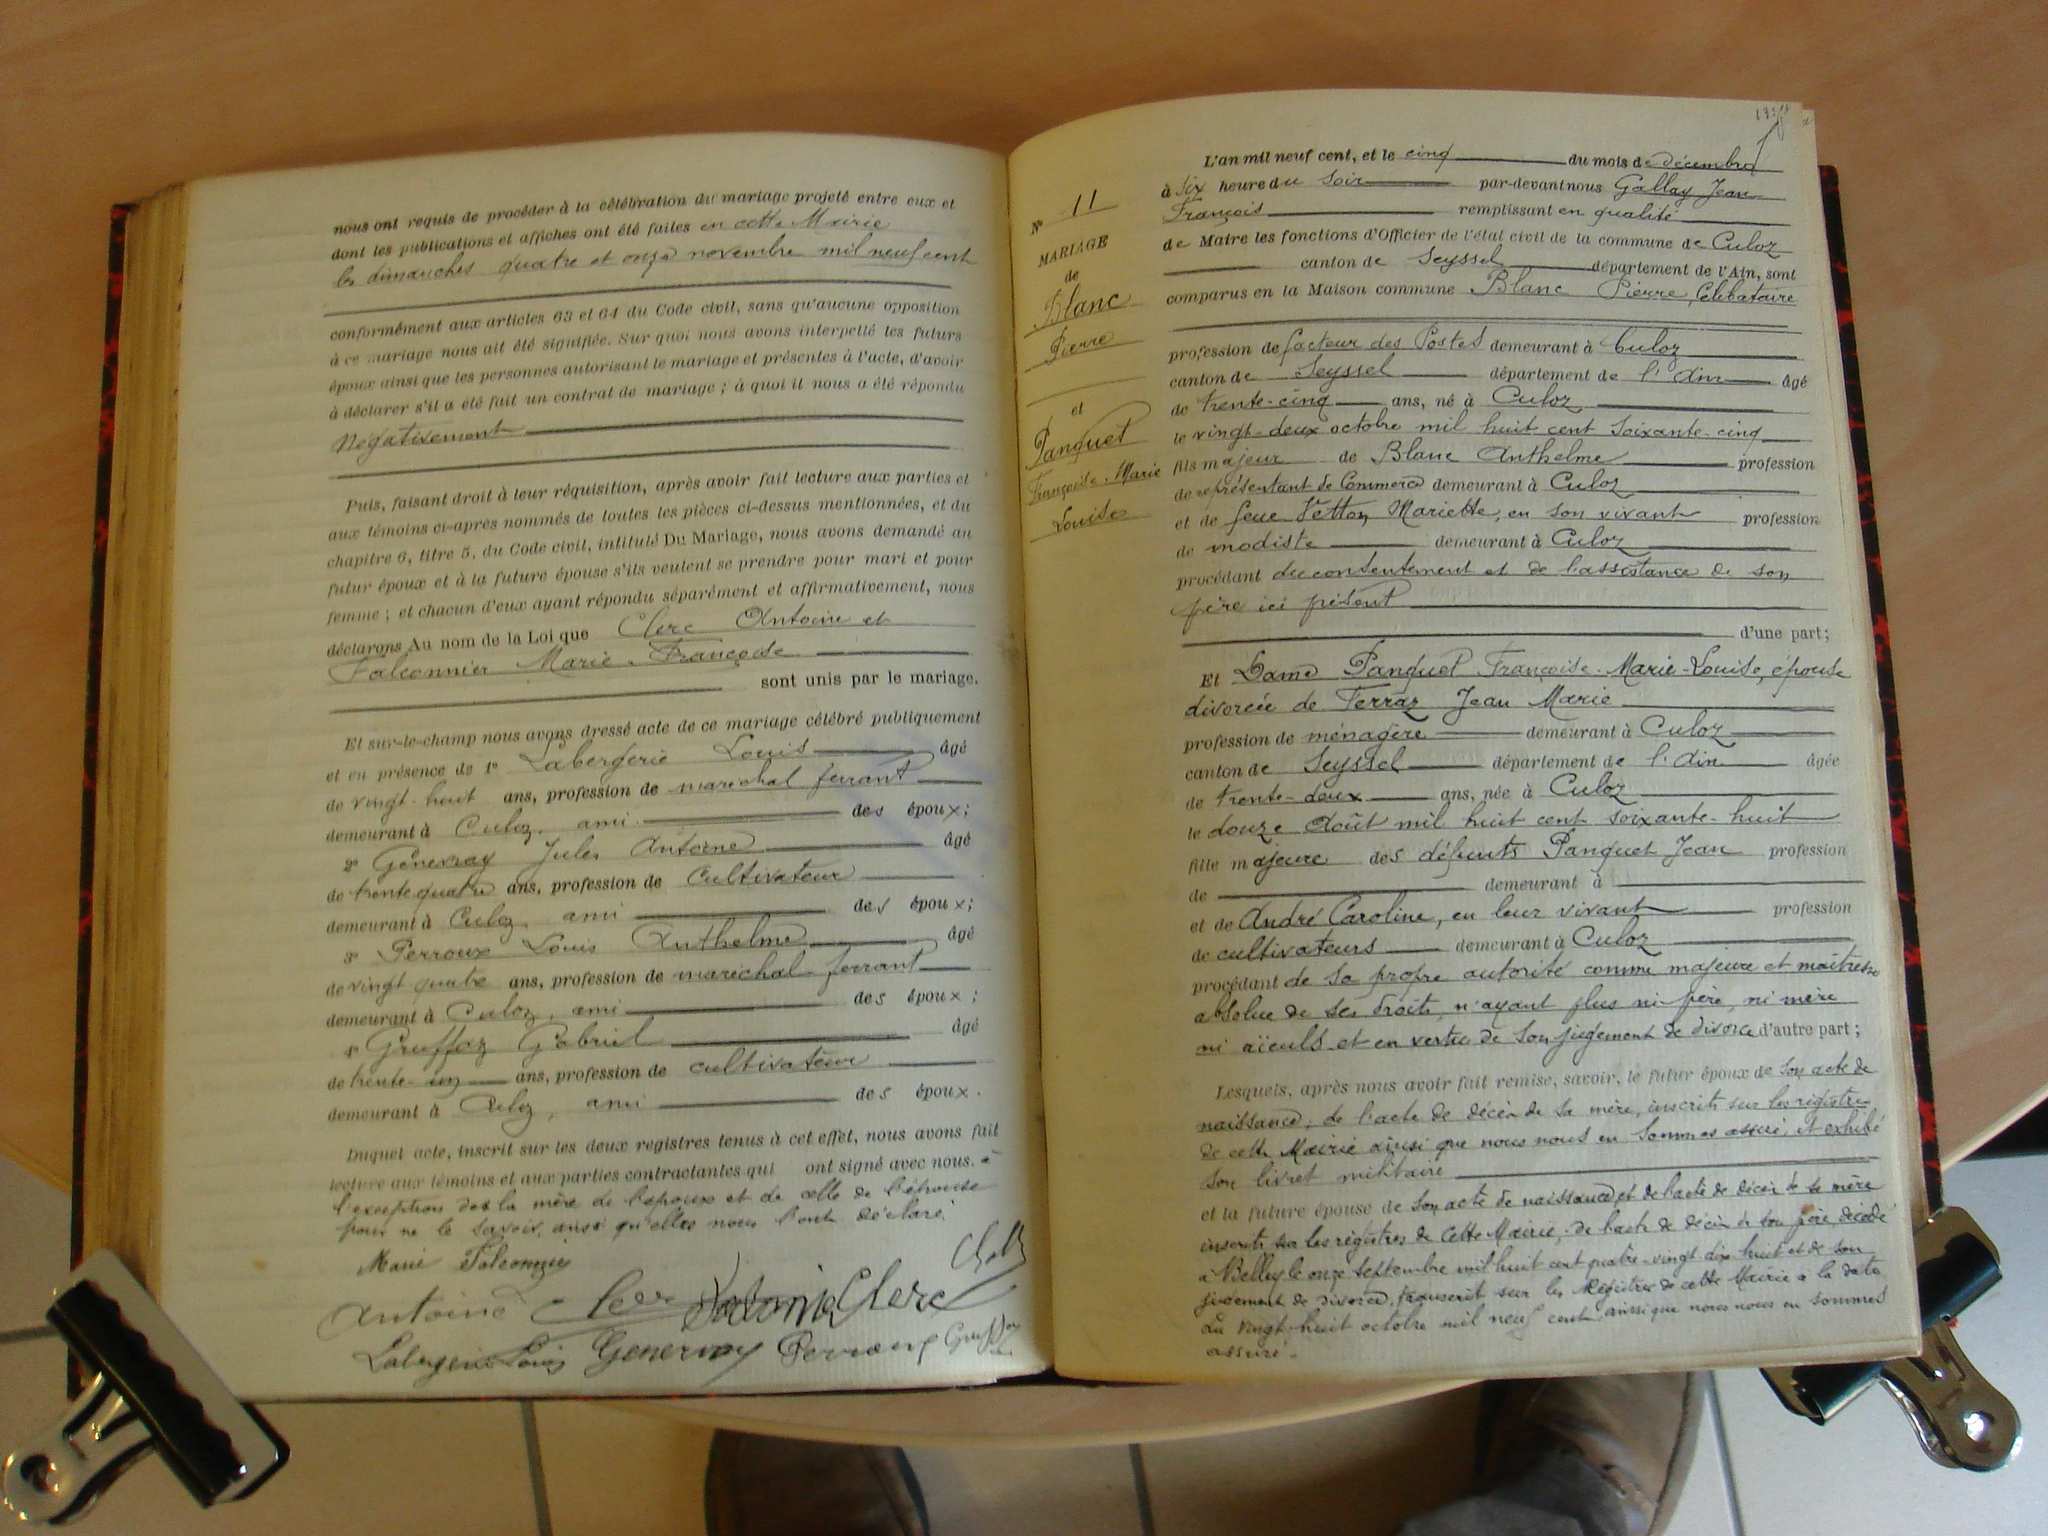 nous ont requis de procéder à la célébration du mariage projeté entre eux et
dont les publications et affiches ont été faites en cette Mairie
les dimanches quatre et onze novembre mil neuf cent
conformément aux articles 63 et 64 du Code civil, sans qu'aucune opposition
à ce mariage nous ait été signifiée. Sur quoi nous avons interpellé les futurs
époux ainsi que les personnes autorisant le mariage et présentes à l'acte, d'avoir
à déclarer s'il a été fait un contrat de mariage ; à quoi il nous a été répondu
Négativement
Puis, faisant droit à leur réquisition, après avoir fait lecture aux parties et
aux témoins ci-après nommés de toutes les pièces ci-dessus mentionnées, et du
chapitre 6, titre 5, du Code civil, intitulé Du Mariage, nous avons demandé au
futur époux et à la future épouse s'ils veulent se prendre pour mari et pour
femme ; et chacun d'eux ayant répondu séparément et affirmativement, nous
déclarons Au nom de la Loi que Clerc Antoine et
Falconnier Marie-Françoise
sont unis par le mariage.
Et sur-le-champ nous avons dressé acte de ce mariage célébré publiquement
et en présence de 1° Labergerie Louis âgé
de vingt-huit ans, profession de maréchal ferrant
demeurant à Culoz, ami des époux ;
2° Génevray Jules Antoine âgé
de trente quatre ans, profession de cultivateur
demeurant à Culoz, ami des époux ;
3° Perroux Louis Anthelme âgé
de vingt quatre ans, profession de maréchal-ferrant
demeurant à Culoz, ami des époux ;
4° Gruffaz Gabriel âgé
de trente-un ans, profession de cultivateur
demeurant à Culoz, ami des époux.
Duquel acte, inscrit sur les deux registres tenus à cet effet, nous avons fait
lecture aux témoins et aux parties contractantes qui ont signé avec nous. à
l'exception des la mère de l'époux et de celle de l'épouse
pour ne le savoir, ainsi qu'elles nous l'ont déclaré.
Marie Falconnier
Antoine Clerc Clerc
Labergerie Louis Genevray Perroux Gruffaz
N° 11
MARIAGE
de
Blanc
Pierre
et
Panquet
Françoise-Marie
Louise
L'an mil neuf cent, et le cinq du mois de décembre
à six heure du soir par-devant nous Gallay Jean
François remplissant en qualité
de Maire les fonctions d'Officier de l'état civil de la commune de Culoz
canton de Seyssel département de l'Ain, sont
comparus en la Maison commune Blanc Pierre, Célibataire
profession de facteur des Postes demeurant à Culoz
canton de Seyssel département de l'Ain âgé
de trente-cinq ans, né à Culoz
le vingt-deux octobre mil huit cent soixante-cinq
fils majeur de Blanc Anthelme profession
de représentant de Commerce demeurant à Culoz
et de feue Vettoz Mariette, en son vivant profession
de modiste demeurant à Culoz
procédant du consentement et de l'assistance de son
père ici présent
d'une part ;
Et Dame Panquet Françoise-Marie-Louise, épouse
divorcée de Ferraz Jean Marie
profession de ménagère demeurant à Culoz
canton de Seyssel département de l'Ain âgée
de trente-deux ans, née à Culoz
le douze Août mil huit cent soixante-huit
fille majeure des défunts Panquet Jean profession
de demeurant à
et de André Caroline, en leur vivant profession
de cultivateurs demeurant à Culoz
procédant de sa propre autorité comme majeure et maîtresse
absolue de ses droits, n'ayant plus ni père, ni mère
ni aïeuls et en vertu de son jugement de divorce d'autre part ;
Lesquels, après nous avoir fait remise, savoir, le futur époux de son acte de
naissance, de l'acte de décès de sa mère, inscrits sur les registres
de cette Mairie ainsi que nous nous en sommes assuré, et exhibé
son livret militaire
et la future épouse de son acte de naissance et de l'acte de décès de sa mère
inscrits sur les registres de cette Mairie, de l'acte de décès de son père, décédé
à Belley le onze septembre mil huit cent quatre-vingt dix huit et de son
jugement de divorce, transcrit sur les Registres de cette Mairie à la date
du vingt-huit octobre mil neuf cent ainsi que nous nous en sommes
assuré.